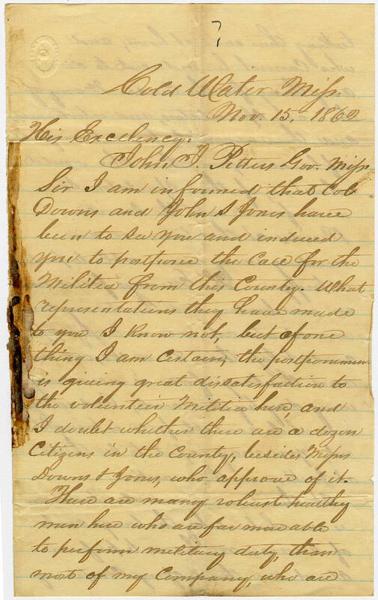 ?
Cold Water Miss.
Nov. 15 - 1862
His Excelency.
John. J. Pettus Gov. Miss
Sir I am informed that Col
Downs and John S Jones have
been to see you and induced
you to postpone the Call for the
Militia from this County. What
representations they have made
to you I know not, but of one
thing I am certain, the postponement
is giving great dissatisfaction to
the volunteer Militia here, and
I doubt whether there are a dozen
Citizens in the County, besides Messrs
Downs & Jones, who approve of it.
There are many robust healthy
men here who are far more able
to perform military duty, than
most of my Company, who are